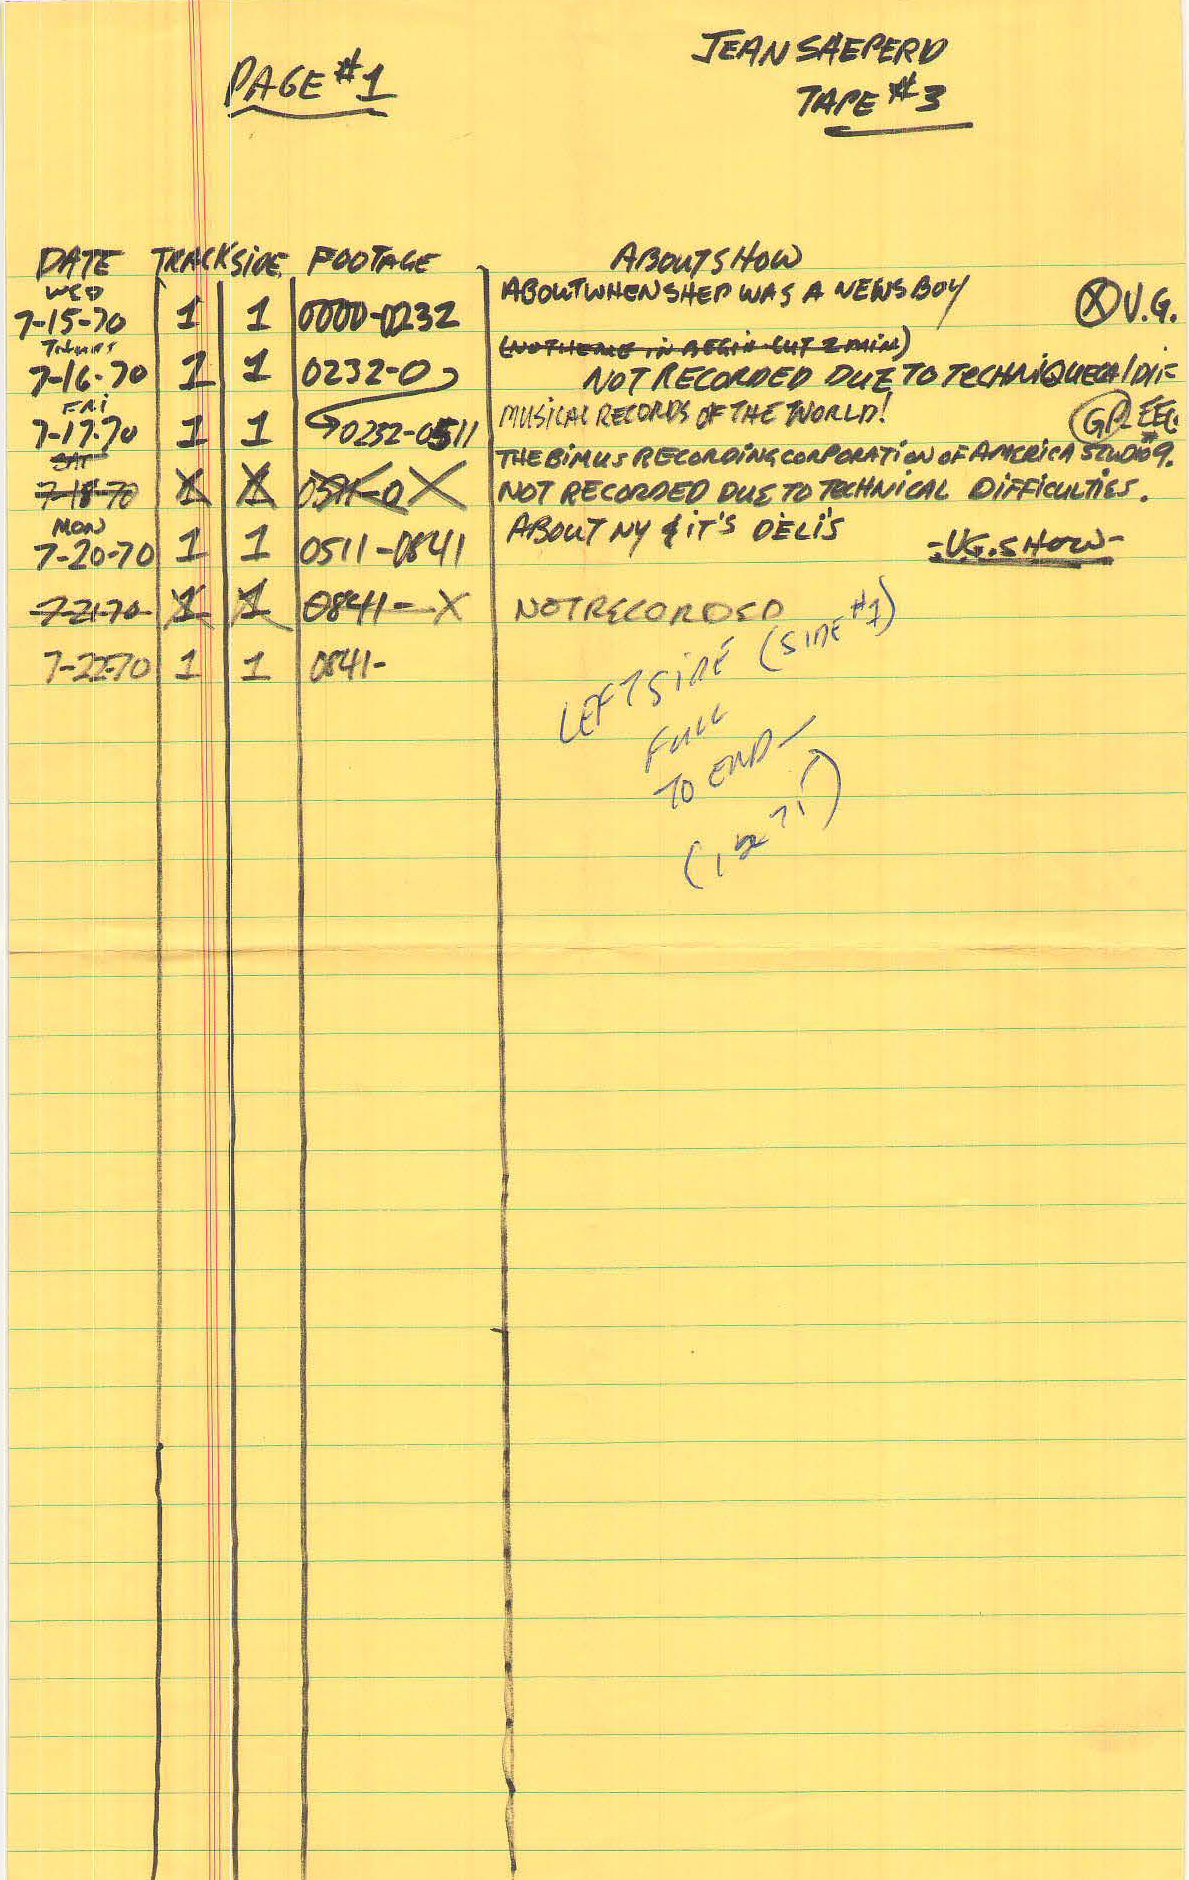 PAGE #1
JEAN SHEPERD
TAPE #3
DATE TRACK SIDE FOOTAGE ABOUT SHOW
WED
7-15-70 1 1 0000-0232 ABOUT WHEN SHEP WAS A NEWS BOY X V.G.
(NO THEME IN BEGIN CUT 2 MIN)
THURS
7-16-70 1 1 0232-0 NOT RECORDED DUE TO TECHNIQUECAL DIF
FRI
7-17-70 1 1 0232-0511 MUSICAL RECORDS OF THE WORLD!
THE BIMUS RECORDING CORPORATION OF AMERICA STUDIO #9.
SAT
7-18-70 1 1 0511-0 X NOT RECORDED DUE TO TECHNICAL DIFFICULTIES.
MON
7-20-70 1 1 0511-0841 ABOUT NY & IT'S DELI'S -V.G. SHOW-
7-21-70 1 1 0841- X NOT RECORDED
7-22-70 1 1 0841-
LEFT SIDE (SIDE #1)
FULL
TO END-